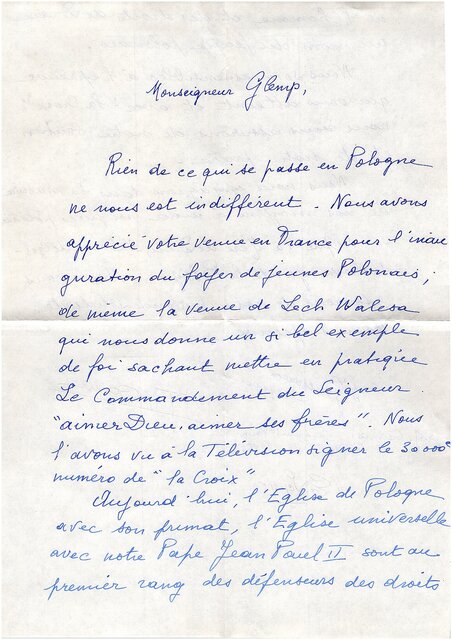 Monseigneur Glemp,
Rien de ce qui se passe en Pologne
ne nous est indifférent. Nous avons
apprécié votre venue en France pour l'inau
guration du foyer de jeunes Polonais ;
de même la venue de Lech Walesa
qui nous donne un si bel exemple
de foi sachant mettre en pratique
Le Commandement du Seigneur
"aimer Dieu, aimer ses frères". Nous
l'avons vu à la Télévision signer le 30000e
numéro de "la Croix"
Aujourd'hui, l'Eglise de Pologne
avec son primat, l'Eglise universelle
avec notre Pape Jean Paul II sont au
premier rang des défenseurs des droits